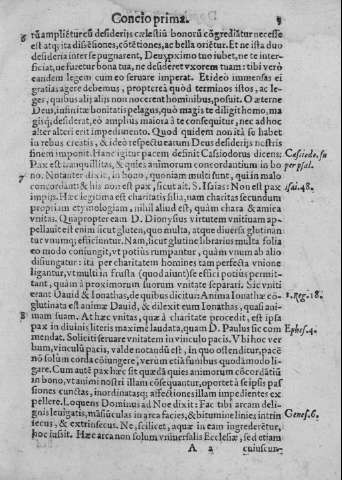 Concio prima. 5
6 rũ amplectuntur cũ desiderijs cælestiũ bonorũ cõgreditur necesse
est atq; ita disẽsiones, cõtẽtiones, ac bella oriẽtur. Et ne ista duo
desideria inter se pugnarent, Deus proximo tuo iubet, ne te inter-
ficiat, ne furetur bona tua, ne desideret vxorem tuam: tibi verò
eandem legem cum eo seruare imperat. Et ideò immensas ei
gratias agere debemus, propterea quòd terminos istos, ac le-
ges, quibus alij alijs non nocerent hominibus, posuit. O æterne
Deus, infinitæ bonitatis pelagus, quò magis te diligit homo, ma
gisq; desiderat, eò amplius maiora à te consequitur, nec adhoc
alter alteri erit impedimento. Quod quidem non ità se habet
in rebus creatis, & ideò respectu earum Deus desiderijs nostris
finem imponit. Hanc igitur pacem definit Casiodorus dicens: Casiodo. su
Pax est tranquillitas, & quies animorum concordantium in bo per psal.
7 no. Notanter dixit, in bono, quoniam multi sunt, qui in malo
concordant: & his non est pax, sicut ait. S. Isaias: Non est pax isai. 48.
impijs. Hæc legitima est charitatis filia, nam charitas secundum
propriam etymologiam, nihil aliud est, quàm chara & amica
vnitas. Quapropter eam D. Dionysius virtutem vnitiuam ap-
pellauit est enim sicut gluten, quo multa, atque diuersa glutinan
tur vnumq; efficiuntur. Nam, sicut glutine librarius multa folia
eo modo consungit, vt potiùs rumpantur, quàm vnum ab alio
disiungatur: ità per charitatem homines tam perfecta vnione
ligantur, vt multi in frusta (quod aiunt) se effici potiùs permit-
tant, quàm à proximorum suorum vnitate separari. Sic vniti
erant Dauid & Ionathas, de quibus dicitur: Anima Ionathæ cõ- 1. Reg. 18.
glutinata est animæ Dauid, & dilexit eum Ionathas, quasi ani-
8 mam suam. At hæc vnitas, quæ à charitate procedit, est ipsa
pax in diuinis literis maximè laudata, quam D. Paulus sic com Ephes. 4.
mendat. Soliciti seruare vnitatem in vinculo pacis. Vbi hoc ver
bum, vinculũ pacis, valde notandũ est, in quo ostenditur, pacẽ
nõ solùm corda cõiungere, verùm etiã funibus quodãmodo li-
gare. Cum autẽ pax hæc sit quædã quies animorum cõcordãtiũ
in bono, vt animi nostri illam cõsequantur, oportet à se ipsis pas
siones cunctas, inordinatasq; affectiones illam impedientes ex
pellere. Loquens Dominus ad Noe dixit: Fac tibi arcam deli-
gnis leuigatis, mãsiũculas in arca facies, & bitumine linies intrin Genes. 6.
secus, & extrinsecus. Ne, scilicet, aquæ in eam ingrederẽtur,
hoc iussit. Hæc arca non solum vniuersalis Ecclesiæ, sed etiam
A a cuiuscun-